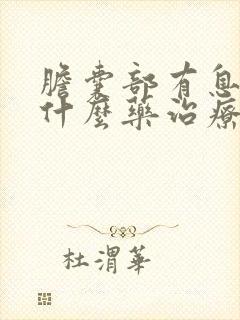 膽囊部有息
什麼藥治療
杜渭華